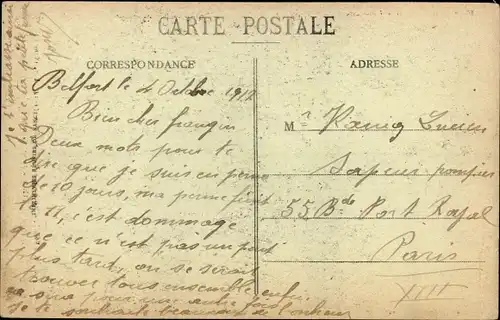 CARTE POSTALE
CORRESPONDANCE
ADRESSE
Belfort le 4 Octobre 1912
Bien cher frangin
Deux mots pour te
dire que je suis en perme
de 10 jours, ma perme finit
le 11, c'est dommage
que ce n'est pas un peut
plus tard, on se serait
trouver tous ensemble, enfin
ça sera pour une autre fois
Je te souhaite beaucoup de bonheur
Je t'embrasse
que la petite
Mr Lucien
Sapeur pompier
55 Bd Port Royal
Paris
XIII